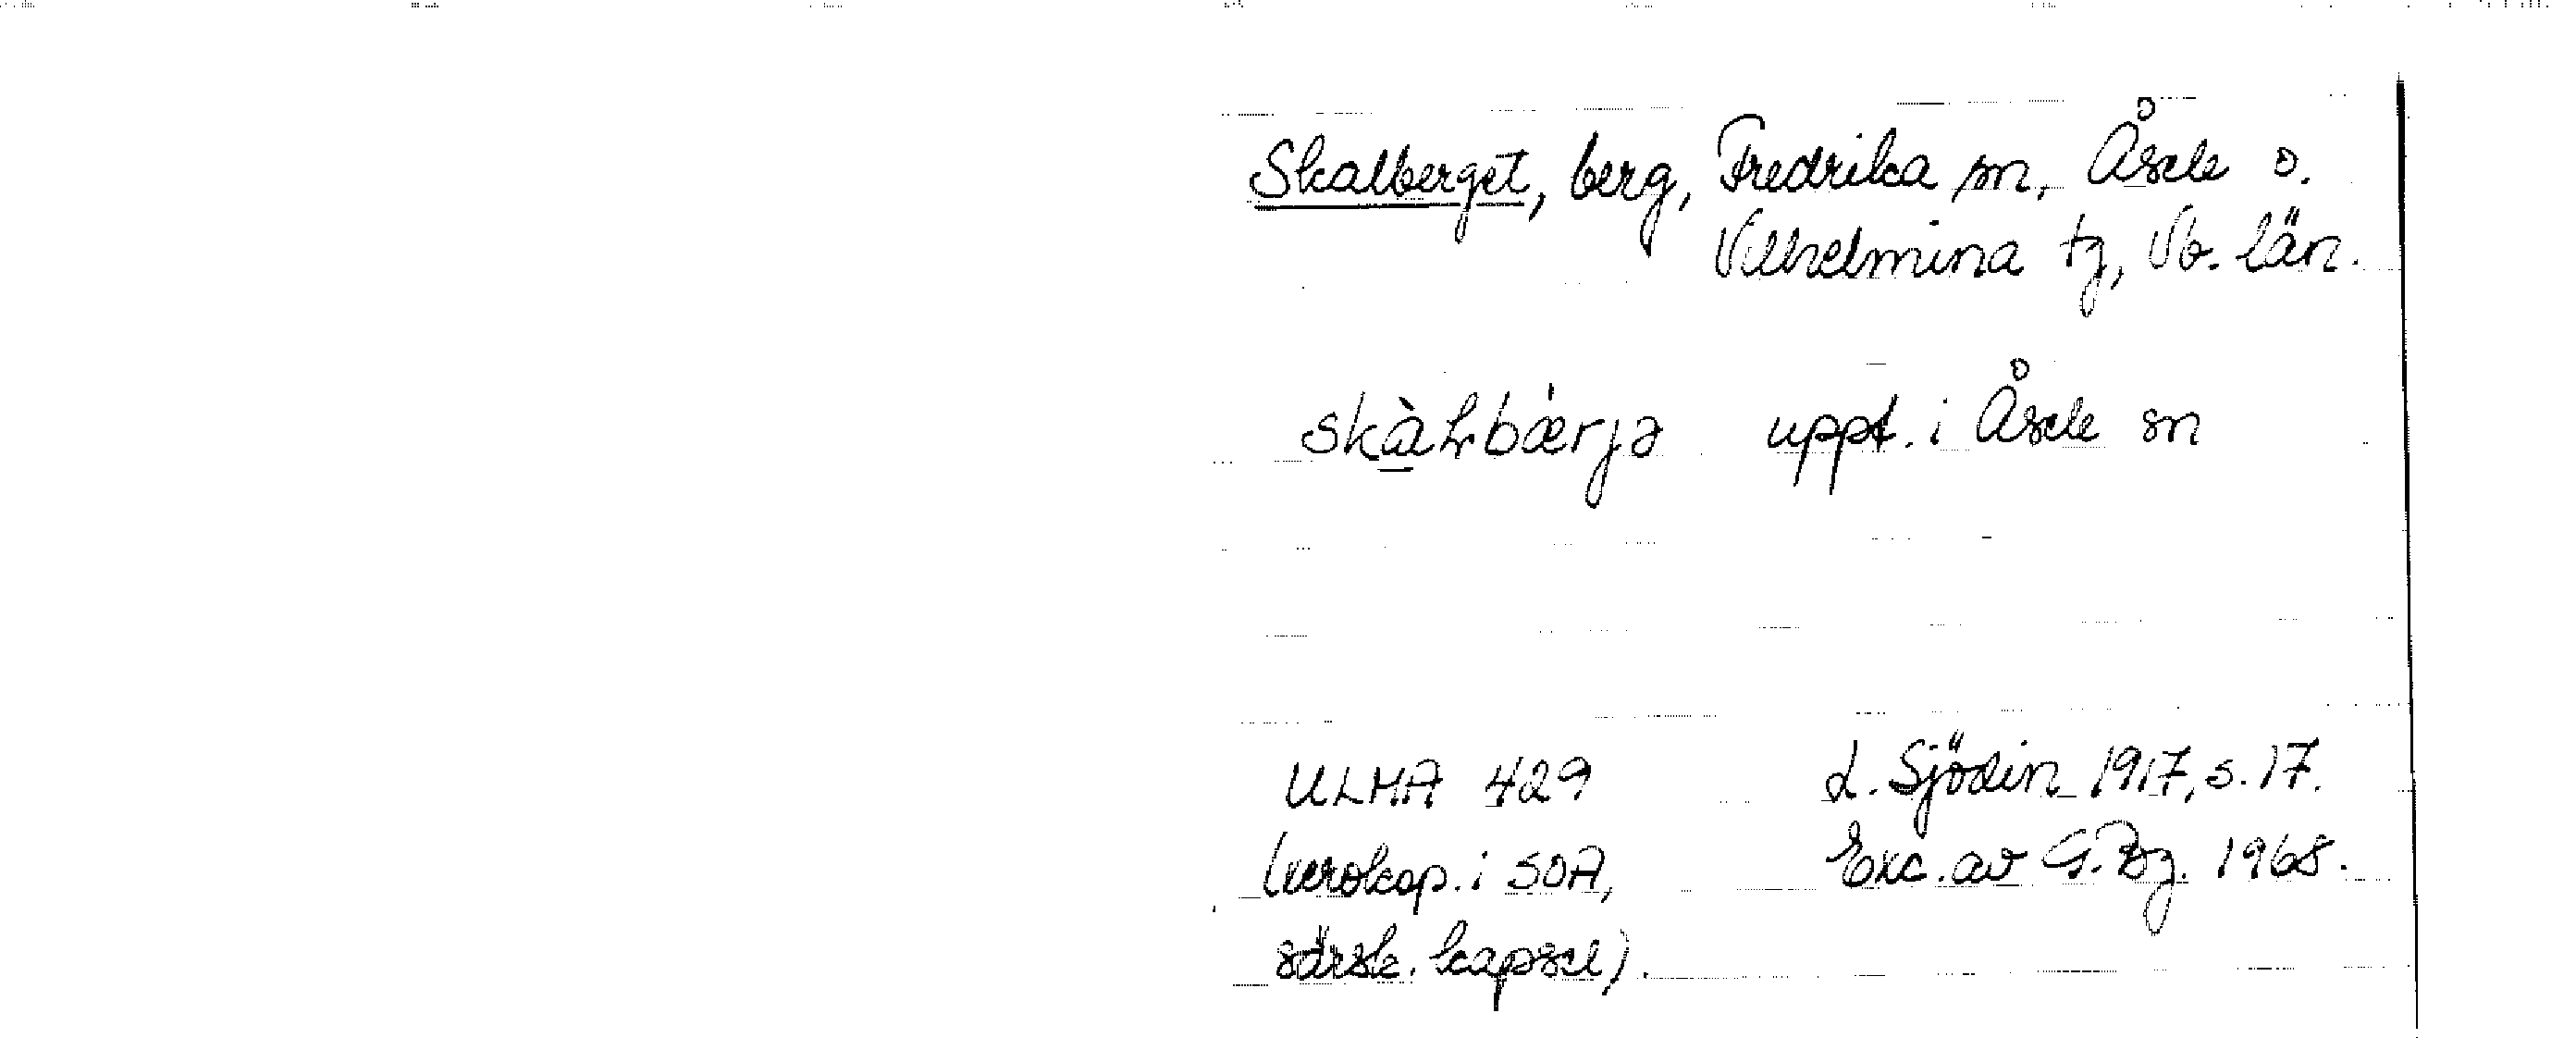 Skalberget, berg, Fredrika sn, Åsele o.
Vilhelmina tg, Vb. län.
skàɫbærjə uppt. i Åsele sn
ULMA 429 L. Sjödin 1917, s. 17.
(xerokop. i SOA, Exc. av G. Bg. 1968.
särsk. kapsel).